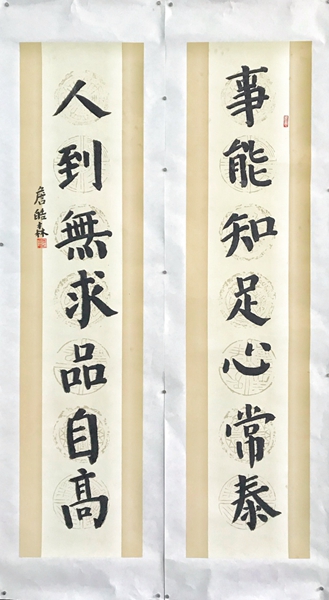 事能知足心常泰
人到無求品自高
詹皓森